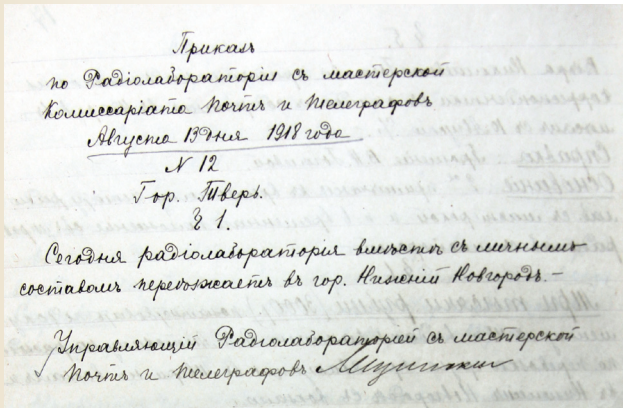 Приказъ
по Радіолабораторіи съ мастерской
Комиссаріата Почтъ и Телеграфовъ
Августа 13 дня 1918 года
N 12
Гор. Тверь.
§ 1.
Сегодня радіолабораторія вмѣстѣ съ личнымъ
составомъ переѣзжаетъ въ гор. Нижній Новгородъ. –
Управляющій Радіолабораторіей съ мастерской
Почтъ и Телеграфовъ